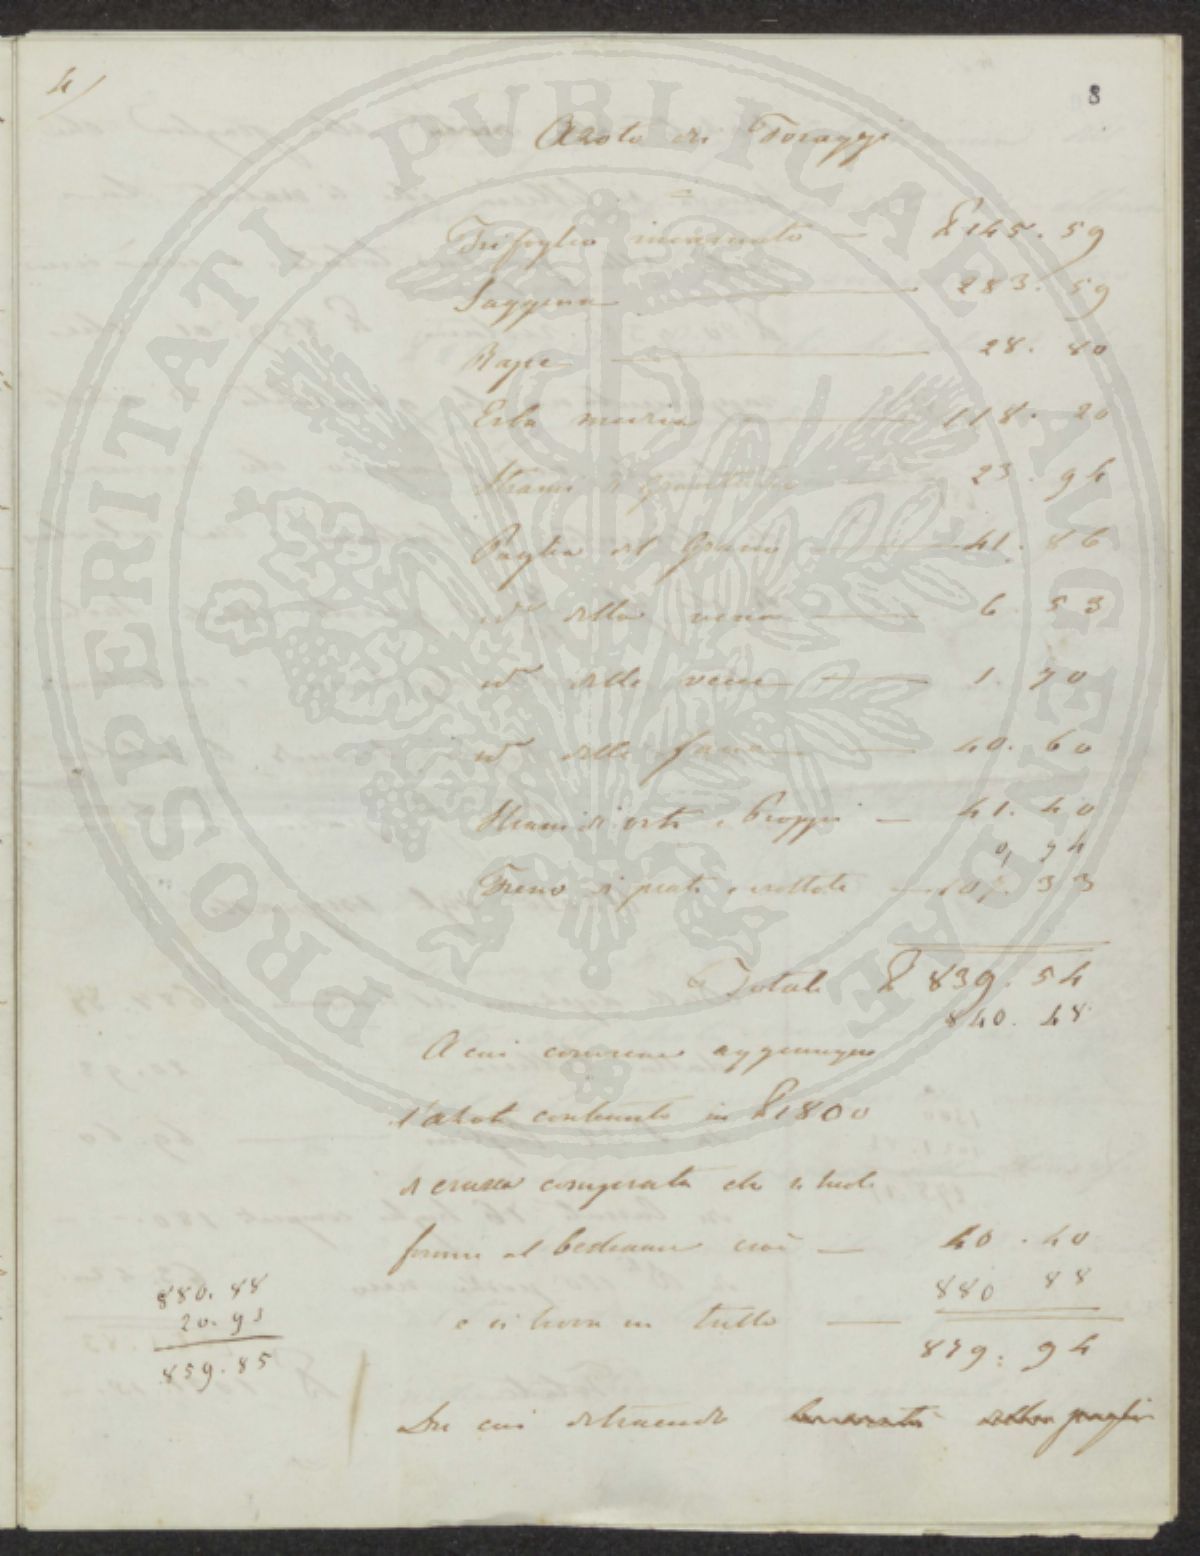 4/
8
Azoto dei Foraggi
Trifoglio incarnato — £ 145. 59
Saggina — 283. 59
Rape — 28. 80
Erba medica — 118. 20
Strami di granturco — 23. 94
Paglia del grano — 41. 86
id. della vena — 6. 53
id. delle vecce — 1. 70
id. delle fave — 40. 60
Strami di orti e Pioppi — 41. 40
0, 94
Fieno di prati e 107. 33
Totale £ 839. 54
840. 48
A cui conviene aggiungere
l'azoto contenuto in £ 1800
di crusca comperata che si diede
al bestiame cioè — 40. 40
880 88
e si trova in tutto — 879: 94
880. 88
20. 93
859. 85
Da cui detraendo della paglia
PROSPERITATI PVBLICAE AVGENDAE